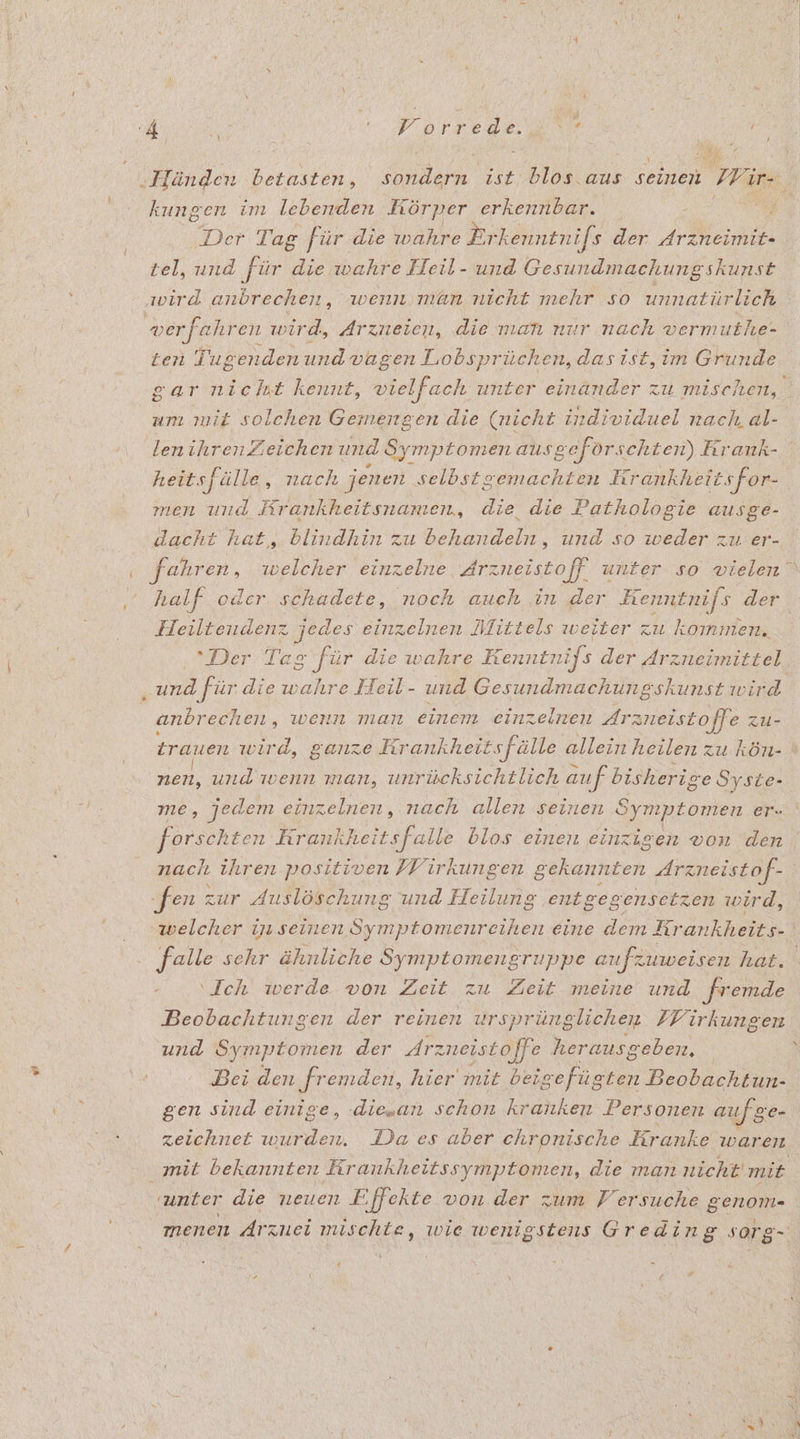 4 Vorrede.
Händen betasten, sondern ist blos aus seinen Wir-
kungen im lebenden Körper erkennbar.
Der Tag für die wahre Erkenntniſs der Arzneimit-
tel, und für die wahre Heil- und Gesundmachungskunst
wird anbrechen, wenn man nicht mehr so unnatürlich
verfahren wird, Arzneien, die man nur nach vermuthe-
ten Tugenden und vagen Lobsprüchen, das ist, im Grunde
gar nicht kennt, vielfach unter einander zu mischen,
um mit solchen Gemengen die (nicht individuel nach al-
len ihren Zeichen und Symptomen ausgeforschten) Krank-
heitsfälle, nach jenen selbstgemachten Krankheitsfor-
men und Krankheitsnamen, die die Pathologie ausge-
dacht hat, blindhin zu behandeln, und so weder zu er-
fahren, welcher einzelne Arzneistoff unter so vielen
half oder schadete, noch auch in der Kenntniſs der
Heiltendenz jedes einzelnen Mittels weiter zu kommen.
Der Tag für die wahre Kenntniſs der Arzneimittel
und für die wahre Heil- und Gesundmachungskunst wird
anbrechen, wenn man einem einzelnen Arzneistoffe zu-
trauen wird, ganze Krankheitsfälle allein heilen zu kön-
nen, und wenn man, unrücksichtlich auf bisherige Syste-
me, jedem einzelnen, nach allen seinen Symptomen er-
forschten Krankheitsfalle blos einen einzigen von den
nach ihren positiven Wirkungen gekannten Arzneistof-
fen zur Auslöschung und Heilung entgegensetzen wird,
welcher in seinen Symptomenreihen eine dem Krankheits-
falle sehr ähnliche Symptomengruppe aufzuweisen hat.
Ich werde von Zeit zu Zeit meine und fremde
Beobachtungen der reinen ursprünglichen Wirkungen
und Symptomen der Arzneistoffe herausgeben.
Bei den fremden, hier mit beigefügten Beobachtun-
gen sind einige, die an schon kranken Personen aufge-
zeichnet wurden. Da es aber chronische Kranke waren
mit bekannten Krankheitssymptomen, die man nicht mit
unter die neuen Effekte von der zum Versuche genom-
menen Arznei mischte, wie wenigstens Greding sorg-